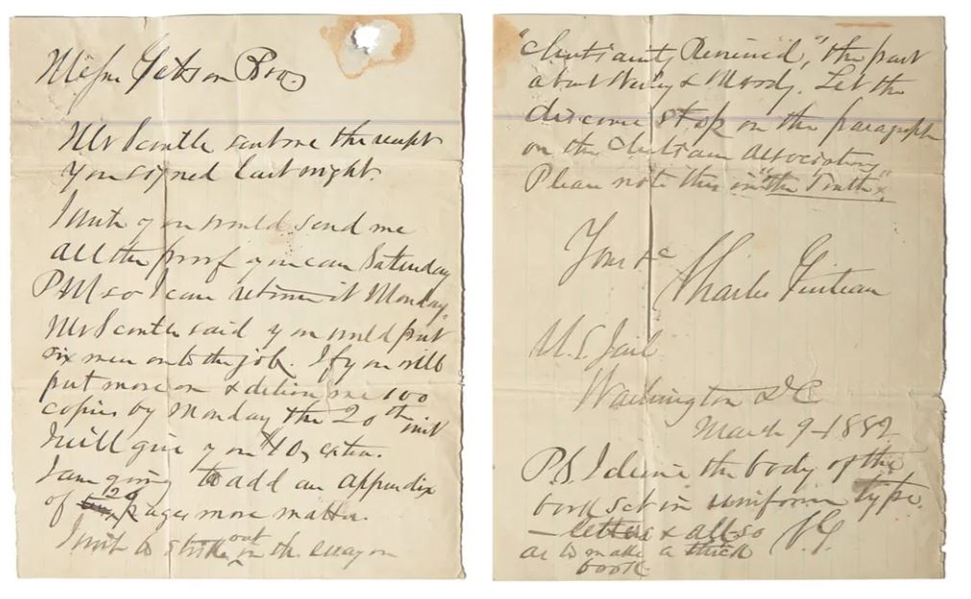 Messrs Gibson Bros
Mr Scoville sent me the receipt
you signed last night.
I wish you would send me
all the proof you can Saturday
P.M. so I can return it Monday.
Mr Scoville said you would put
six men onto the job. If you will
put more on & deliver me 100
copies by Monday the 20th inst
I will give you $10, extra.
I am going to add an appendix
of 20 pages more matter.
I wish to strike out in the essay on
"Christianity Reviewed," the part
about Wesley & Moody. Let the
discourse stop on the paragraph
on the Christian Association.
Please note this in "the Truth".
Yours &c
Charles Guiteau
U.S. Jail
Washington D C
March 9-1882.
P.S. I desire the body of the
book set in uniform type.
— letters & all - so
as to make a thick
book